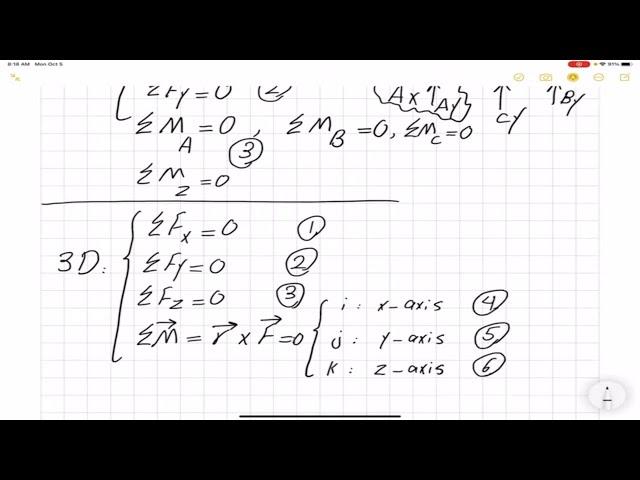 8:18 AM Mon Oct 5 91%
ΣFy=0 ②
Ax ↑Ay ↑Cy ↑By
ΣM_A=0, ΣM_B=0, ΣM_C=0
③
ΣM_z=0
3D:
ΣFx=0 ①
ΣFy=0 ②
ΣFz=0 ③
ΣM⃗ = r⃗ x F⃗ =0
i: x-axis ④
j: y-axis ⑤
k: z-axis ⑥